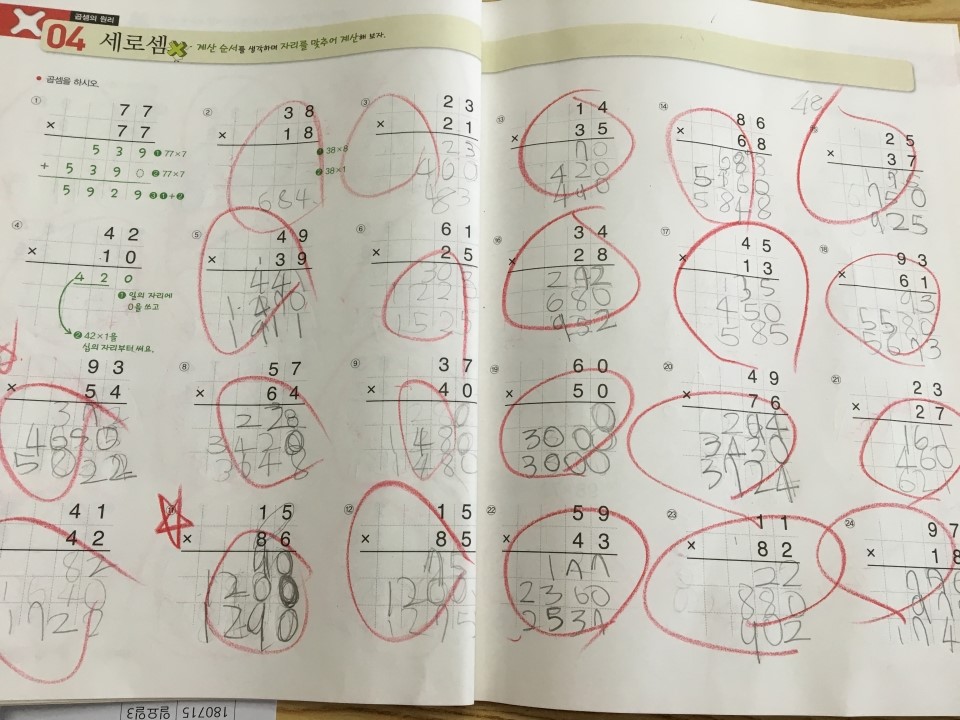 곱셈의 원리
04 세로셈
계산 순서를 생각하며 자리를 맞추어 계산해 보자.
● 곱셈을 하시오.
①
7 7
× 7 7
5 3 9 ❶ 77×7
+ 5 3 9 0 ❷ 77×7
5 9 2 9 ❸ ❶+❷
②
3 8
× 1 8
❶ 38×8
❷ 38×1
684
③
2 3
× 2 1
23
460
483
④
4 2
× 1 0
4 2 0
❶ 일의 자리에
0을 쓰고
❷ 42×1을
십의 자리부터 써요.
⑤
4 9
× 3 9
1911
⑥
6 1
× 2 5
1525
9 3
× 5 4
⑧
5 7
× 6 4
228
3420
3648
⑨
3 7
× 4 0
1480
1480
4 1
× 4 2
82
1640
1722
1 5
× 8 6
90
1200
1290
⑫
1 5
× 8 5
1200
1275
⑬
1 4
× 3 5
70
420
490
⑭
8 6
× 6 8
688
5160
5848
48
2 5
× 3 7
750
925
⑯
3 4
× 2 8
272
680
952
⑰
4 5
× 1 3
135
450
585
⑱
9 3
× 6 1
93
5580
5673
⑲
6 0
× 5 0
0
3000
3000
⑳
4 9
× 7 6
294
3430
3724
㉑
2 3
× 2 7
161
460
621
㉒
5 9
× 4 3
177
2360
2537
㉓
1 1
× 8 2
22
880
902
㉔
9 7
× 1 8
180715
일요일3